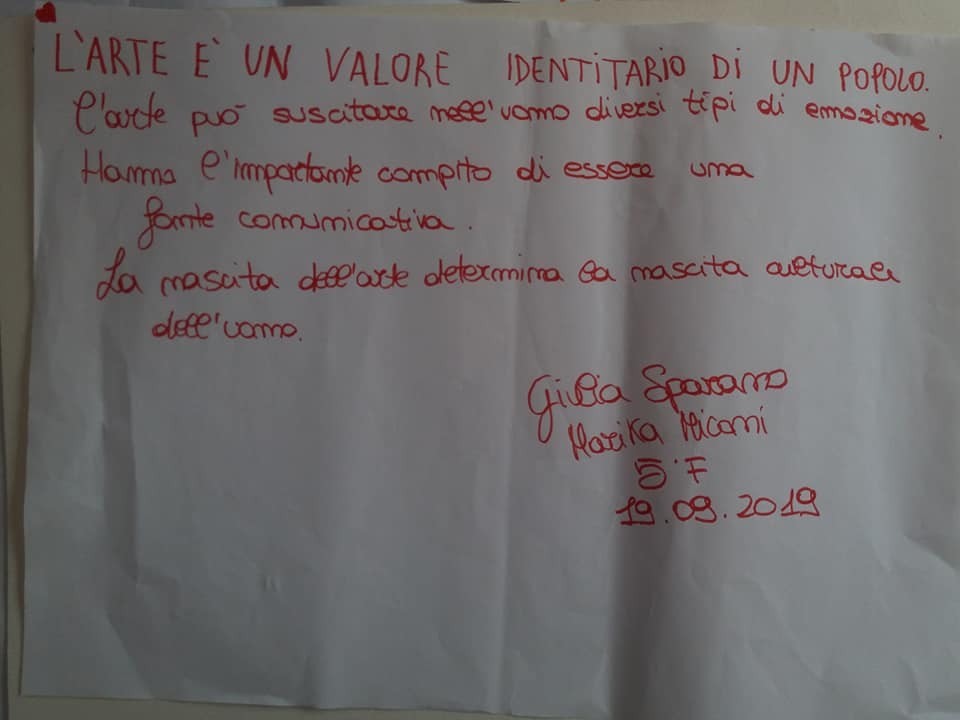 L'ARTE È UN VALORE IDENTITARIO DI UN POPOLO.
L'arte può suscitare nell'uomo diversi tipi di emozione.
Hanno l'importante compito di essere una
fonte comunicativa.
La nascita dell'arte determina la nascita culturale
dell'uomo.
Giulia Sparano
Marika Miconi
5°F
19.09.2019